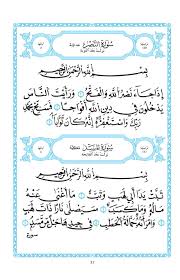 سُورَةُ النَّصْرِ
بِسْمِ اللَّهِ الرَّحْمَٰنِ الرَّحِيمِ
إِذَا جَاءَ نَصْرُ اللَّهِ وَالْفَتْحُ ۝ وَرَأَيْتَ النَّاسَ
يَدْخُلُونَ فِي دِينِ اللَّهِ أَفْوَاجًا ۝ فَسَبِّحْ بِحَمْدِ
رَبِّكَ وَاسْتَغْفِرْهُ إِنَّهُ كَانَ تَوَّابًا ۝
سُورَةُ
بِسْمِ اللَّهِ الرَّحْمَٰنِ الرَّحِيمِ
تَبَّتْ يَدَا أَبِي لَهَبٍ وَتَبَّ ۝ مَا أَغْنَىٰ عَنْهُ
مَالُهُ وَمَا كَسَبَ ۝ سَيَصْلَىٰ نَارًا ذَاتَ لَهَبٍ
۝ وَامْرَأَتُهُ حَمَّالَةَ الْحَطَبِ ۝ فِي جِيدِهَا حَبْلٌ مِّن مَّسَدٍ ۝
سورة